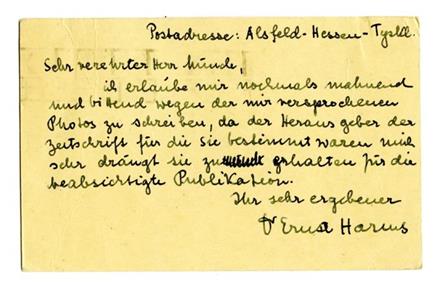 Postadresse: Alsfeld-Hessen-
Sehr verehrter Herr Münde,
ich erlaube mir nochmals mahnend
und bittend wegen der mir versprochenen
Photos zu schreiben, da der Herausgeber der
Zeitschrift für die sie bestimmt waren mich
sehr drängt sie zu erhalten für die
beabsichtigte Publikation.
Ihr sehr ergebener
Dr Ernst Harms